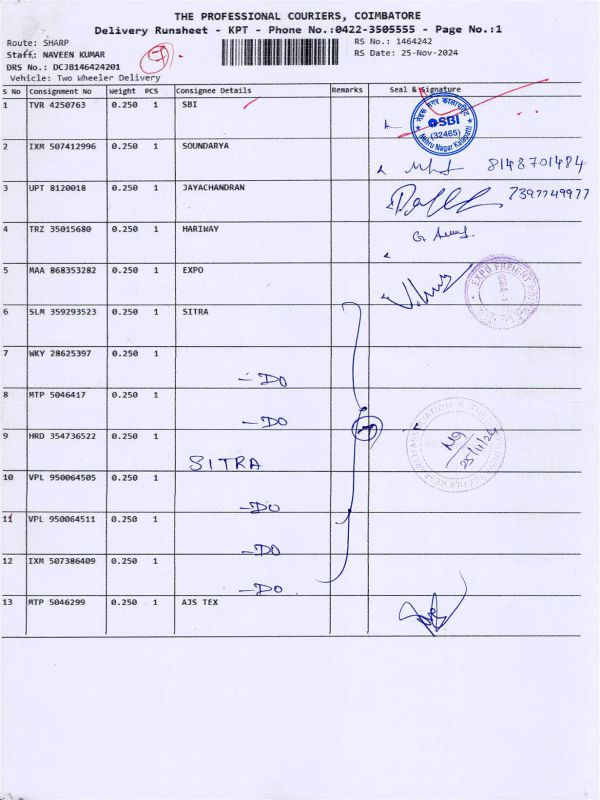 THE PROFESSIONAL COURIERS, COIMBATORE
Delivery Runsheet - KPT - Phone No.:0422-3505555 - Page No.:1
Route: SHARP
RS No.: 1464242
Staff: NAVEEN KUMAR
RS Date: 25-Nov-2024
DRS No.: DCJB146424201
Vehicle: Two Wheeler Delivery
S No Consignment No Weight PCS Consignee Details Remarks Seal & Signature
1 TVR 4250763 0.250 1 SBI
SBI
(32465)
Nehru Nagar Kalapatti
2 IXM 507412996 0.250 1 SOUNDARYA
8148701484
3 UPT 8120018 0.250 1 JAYACHANDRAN
7397749977
4 TRZ 35015680 0.250 1 HARIWAY
5 MAA 868353282 0.250 1 EXPO
EXPO FREIGHT
6 SLM 359293523 0.250 1 SITRA
7 WKY 28625397 0.250 1
-DO
8 MTP 5046417 0.250 1
-DO
9 HRD 354736522 0.250 1
SITRA
25/11/24
10 VPL 950064505 0.250 1
-DO
11 VPL 950064511 0.250 1
-DO
12 IXM 507386409 0.250 1
-DO
13 MTP 5046299 0.250 1 AJS TEX